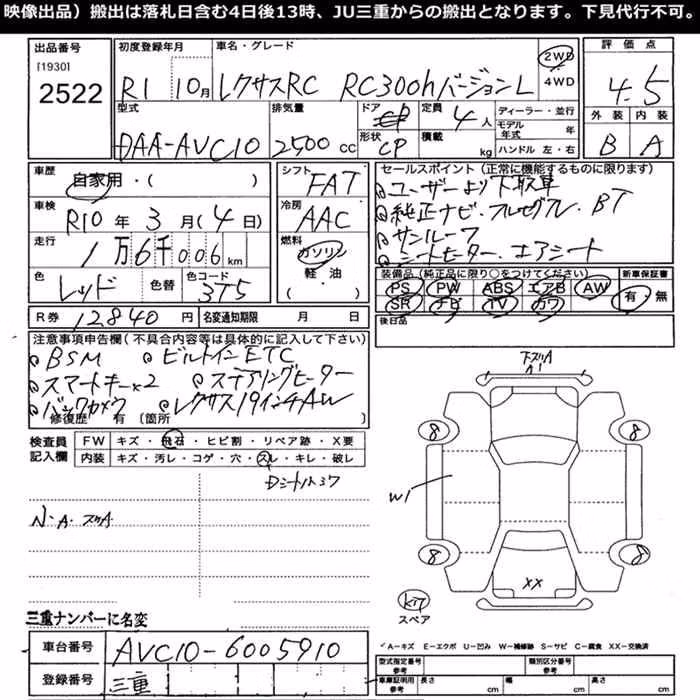 映像出品）搬出は落札日含む4日後13時、JU三重からの搬出となります。下見代行不可。
出品番号 初度登録年月 車名・グレード 2WD 評価点
[1930]
2522 R1 10月 レクサスRC RC300hバージョンL 4WD 4.5
型式 排気量 ドア 定員 4人 ディーラー・並行 外装 内装
モデル年式 年
DAA-AVC10 2500cc 形状 CP 積載 kg ハンドル 左・右 B A
車歴 自家用・( ) シフト FAT セールスポイント（正常に機能するものに限ります）
ユーザーより下取車
車検 R10年3月(4日) 冷房 AAC 純正ナビ・フルセグTV・BT
サンルーフ
走行 1万6千006km 燃料 ガソリン シートヒーター エアシート
軽・油
(・)
色 レッド 色替 色コード 3T5 装備品（純正品に限り○をつけてください） 新車保証書
PS PW ABS エアB AW 有・無
SR TV カワ
R券 12840円 名変通知期限 月 日 後日品
注意事項申告欄（不具合内容等は具体的に記入して下さい）
BSM ビルトインETC
スマートキー×2 ステアリングヒーター
バックカメラ レクサス19インチAW
修復歴 有 〔箇所
下スリA
A1
検査員記入欄 FW キズ・飛石・ヒビ割・リペア跡・X要
内装 キズ・汚レ・コゲ・穴・スレ・キレ・破レ
Dシートスレ
8 8
W1
N・A・スリA
8 8
XX
スペア
三重ナンバーに名変
車台番号 AVC10-6005910
A－キズ E－エクボ U－凹み W－補修跡 S－サビ C－腐食 XX－交換済
型式指定番号 参考 類別区分番号 参考
登録番号 三重 車庫証明用 参考 長さ cm 幅 cm 高さ cm